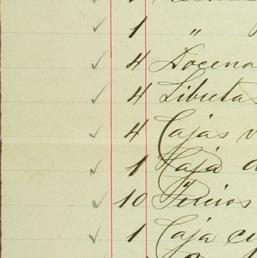 1 "
4 Docena
4 Libretas
4 Cajas
1 Caja
10
1 Caja